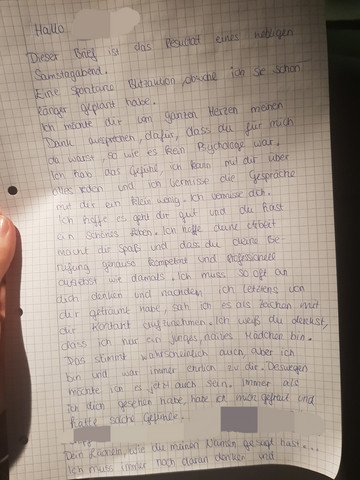 Hallo
Dieser Brief ist das Resultat eines nebligen
Samstagabend.
Eine spontane Blitzaktion, obwohl ich sie schon
länger geplant habe.
Ich möchte dir von ganzen Herzen meinen
Dank aussprechen, dafür, dass du für mich
da warst, so wie es kein Psychologe war.
Ich hab das Gefühl, ich kann mit dir über
alles reden und ich vermisse die Gespräche
mit dir ein klein wenig. Ich vermisse dich.
Ich hoffe es geht dir gut und du hast
ein schönes Leben. Ich hoffe deine Arbeit
macht dir Spaß und dass du deine Be-
rufung genauso kompetent und professionell
ausübst wie damals. Ich muss so oft an
dich denken und nachdem ich letztens von
dir geträumt habe, sah ich es als Zeichen mit
dir Kontakt aufzunehmen. Ich weiß du denkst,
dass ich nur ein junges, naives Mädchen bin.
Das stimmt wahrscheinlich auch, aber ich
bin und war immer ehrlich zu dir. Deswegen
möchte ich es jetzt auch sein. Immer als
ich dich gesehen habe, habe ich mich gefreut und
hatte solche Gefühle.
Dein Lächeln, wie du meinen Namen gesagt hast...
Ich muss immer noch daran denken und